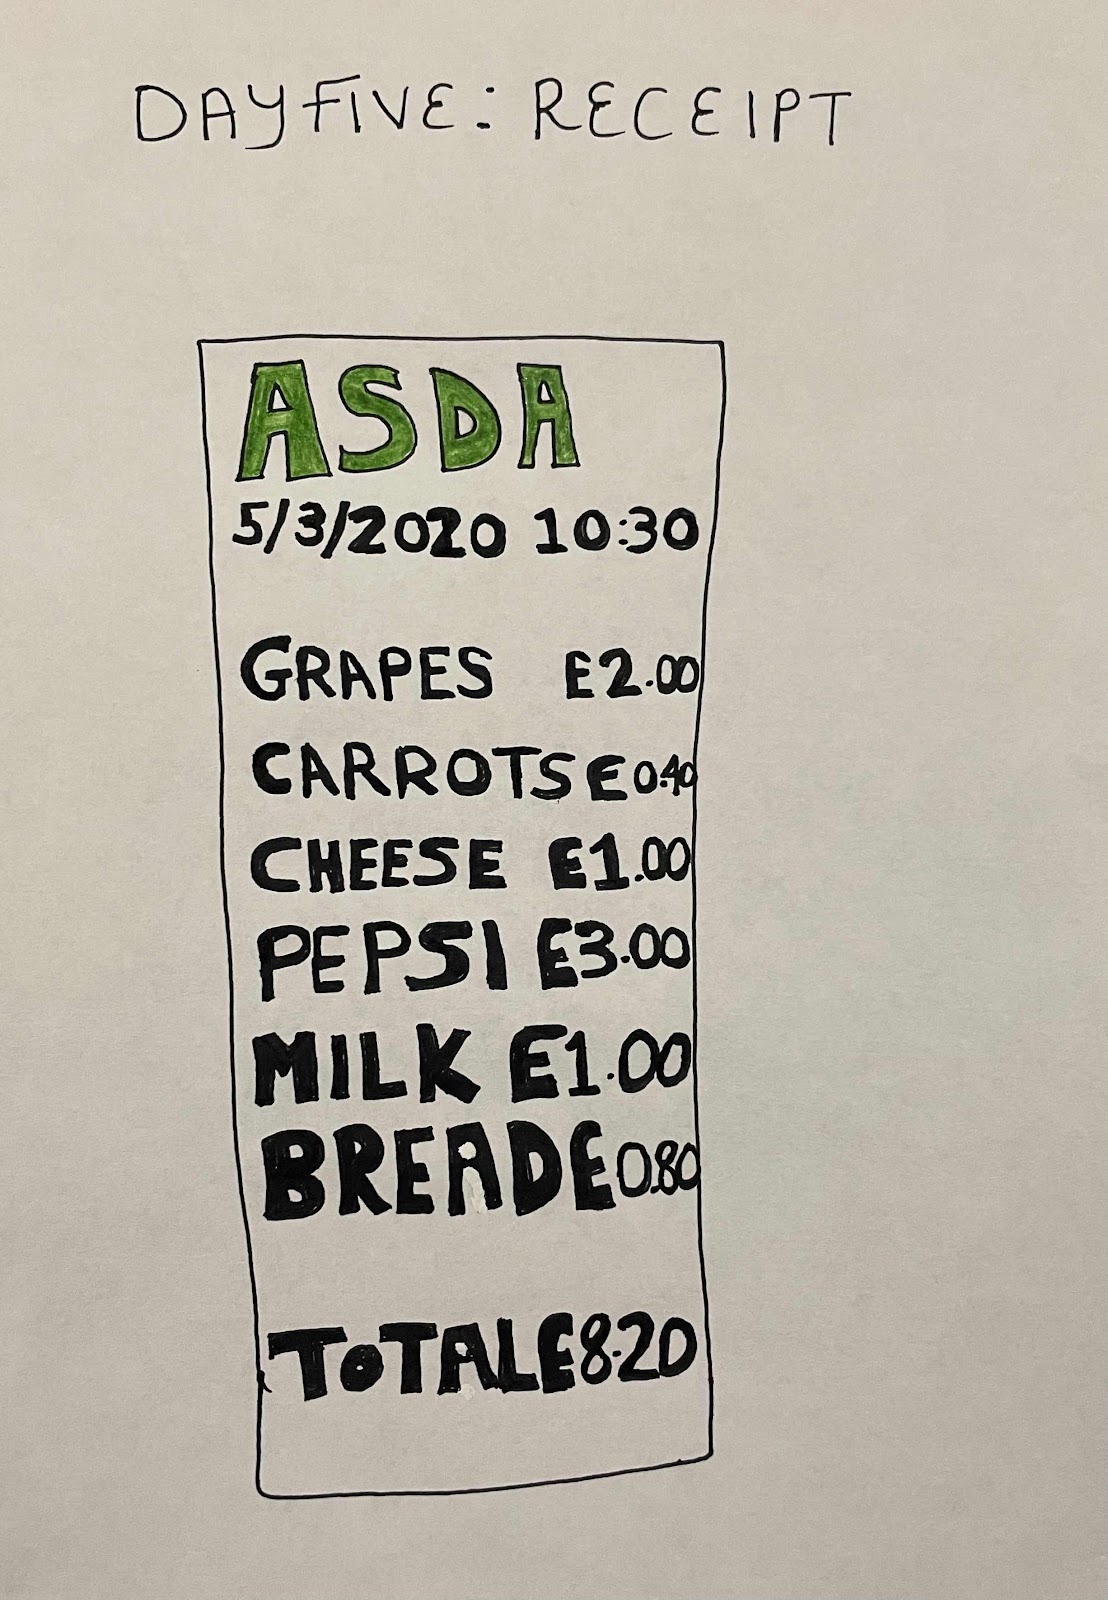 DAY FIVE: RECEIPT
ASDA
5/3/2020 10:30
GRAPES E2.00
CARROTS E0.40
CHEESE E1.00
PEPSI E3.00
MILK E1.00
BREAD E0.80
TOTAL E8.20